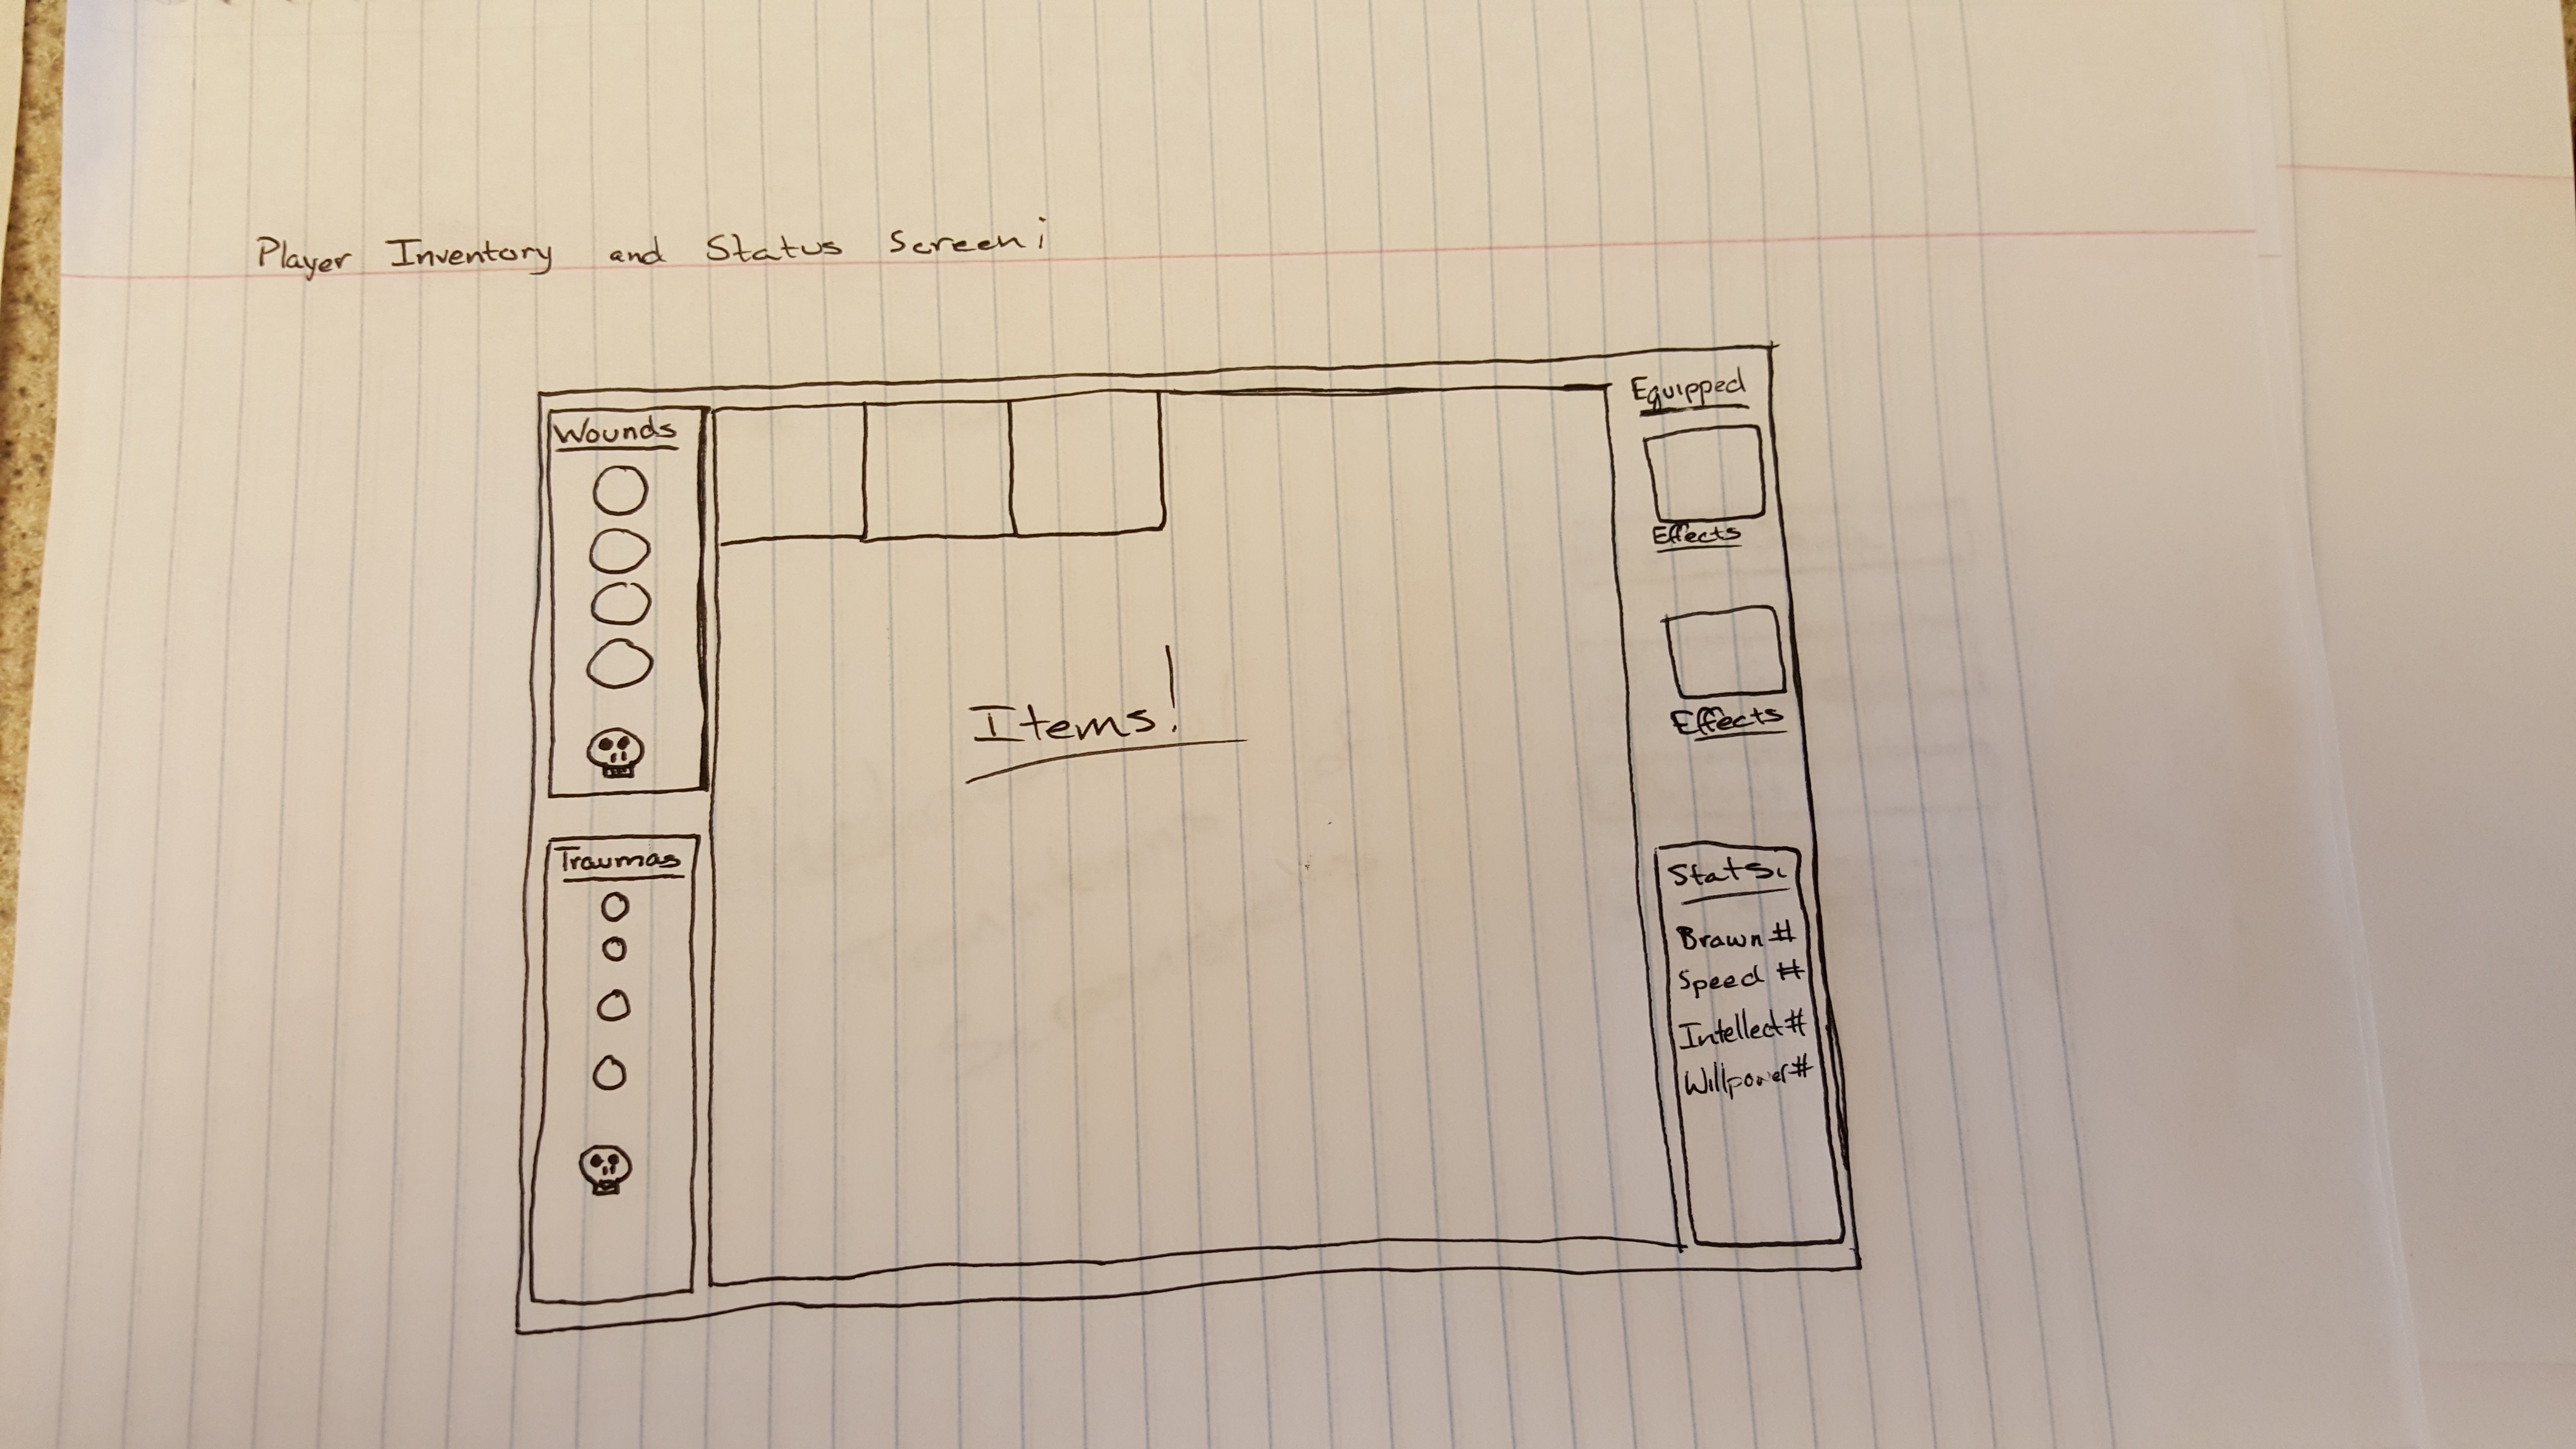 Player Inventory and Status Screen:
Wounds
Traumas
Items!
Equipped
Effects
Effects
Stats:
Brawn #
Speed #
Intellect #
Willpower #